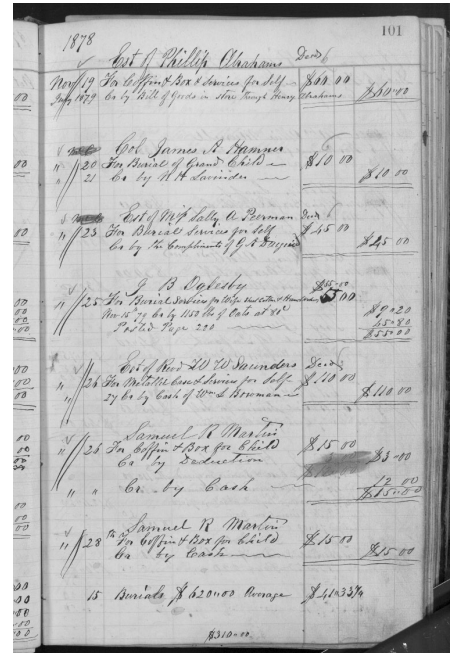 101
1878
Est of Phillip Abrahams Decd
Nov 19 For Coffin & Box & Services for Self $60 00
1879 Cr by Bill of Goods in store through Henry Abrahams $60-00
Col James A Hamner
" 20 For Burial of Grand Child $10 00
" 21 Cr by N H $10 00
Est of Mrs Sally A Peerman Decd
" 23 For Burial Services for Self $45 00
Cr by the Compliments of G A $45 00
J B Oglesby $55-00
" 25 For Burial Services for Wife 00
Nov 15th 79 Cr by 1150 lbs of Oats at 80c $9-20
Posted Page 220 45-80
$55-00
Est of Revd W W Saunders Decd
" 26 For Metallic Case & Services for Self $110 00
27 Cr by Cash of Wm S Bowman $110 00
Samuel R Martin
" 26 For Coffin & Box for Child $15 00
Cr by Deduction $3-00
" " Cr by Cash 12 00
$15-00
Samuel R Martin
" 28th For Coffin & Box for Child $15 00
Cr by Cash $15 00
15 Burials $620-00 Average $41-33 1/4
$310-00